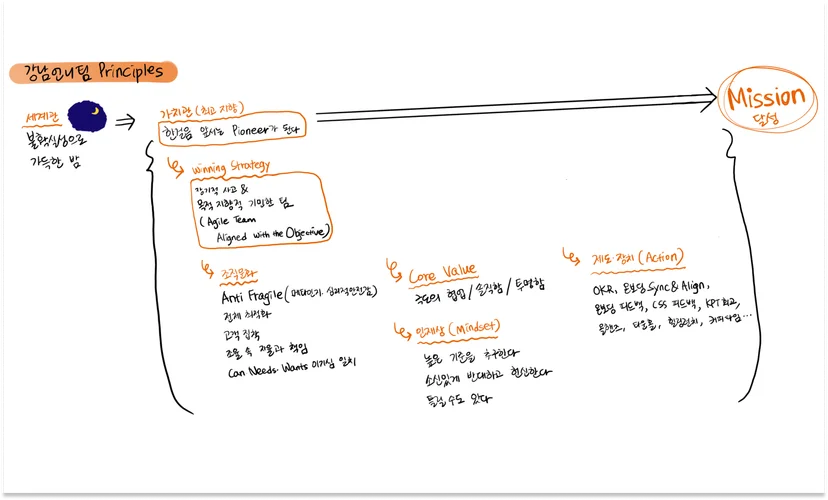 강남언니팀 Principles
세계관
불확실성으로
가득한 밤
가치관 (최고 지향)
한걸음 앞서는 Pioneer가 된다
Mission
달성
Winning Strategy
장기적 사고 &
목적 지향적 기민한 팀
(Agile Team
Aligned with the Objective)
조직문화
Anti Fragile (메타인지, 심리적안전감)
전체 최적화
고객 집착
조율 속 자율과 책임
Can Needs Wants 이기심 일치
Core Value
주도의 협업 / 솔직함 / 투명함
인재상 (Mindset)
높은 기준을 추구한다
소신있게 반대하고 헌신한다
틀릴 수도 있다
제도·장치 (Action)
OKR, 온보딩 Sync & Align,
온보딩 피드백, CSS 피드백, KPT 회고,
올핸즈, 타운홀, 힐링런치, 커피타임...